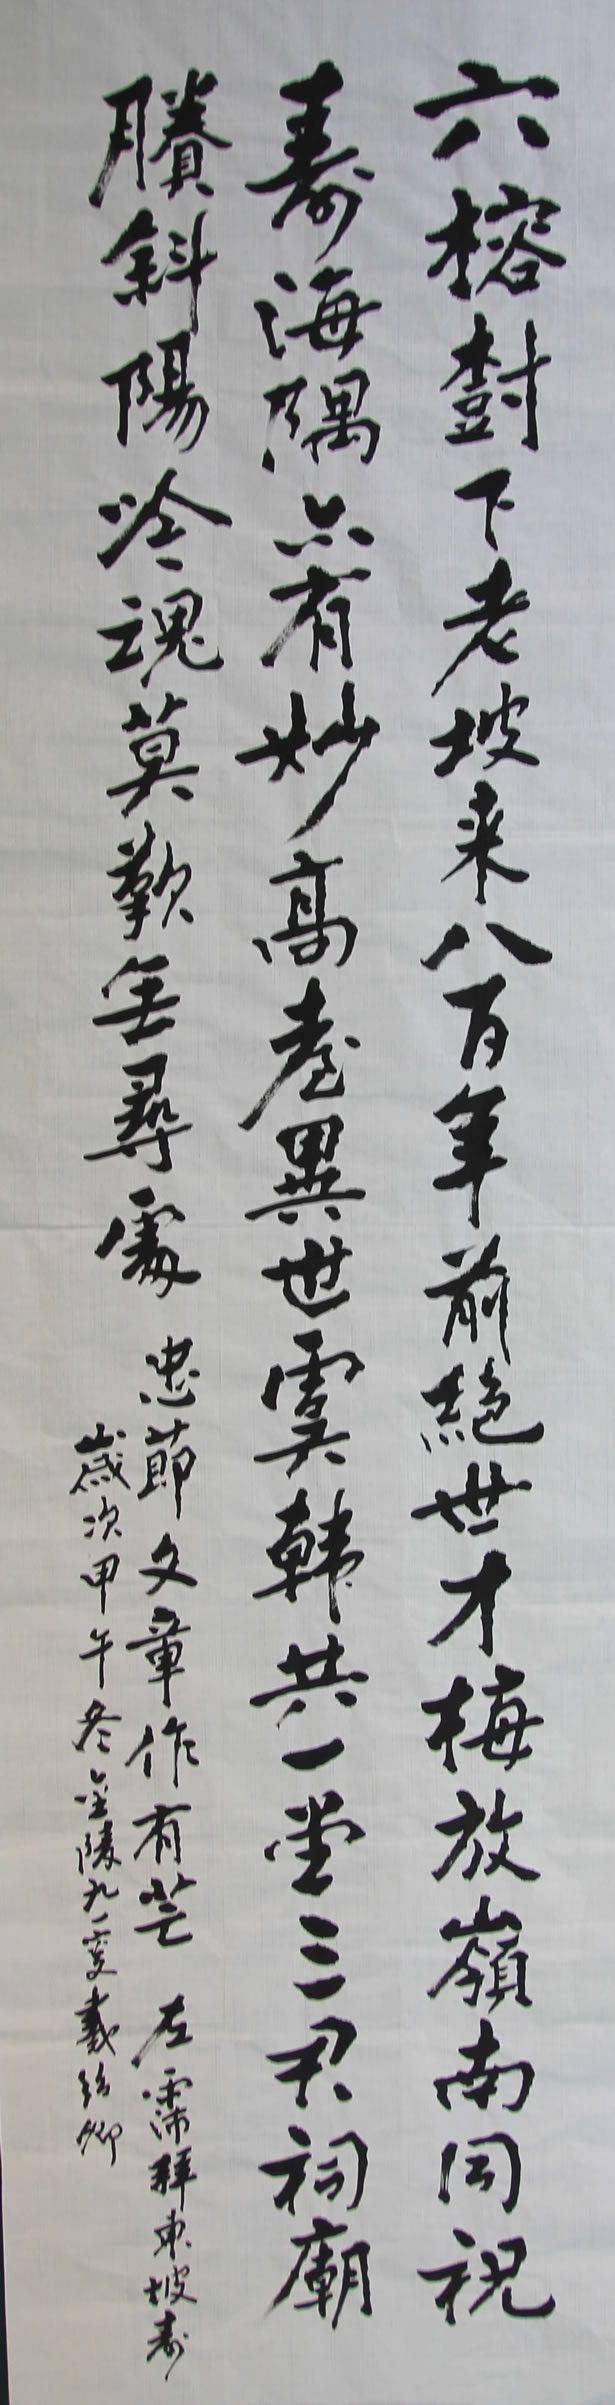 六榕樹下老坡来八百年前絶世才梅放嶺南同祝
壽海隅亦有妙高臺異世虞韓共一堂三君祠廟
賸斜陽吟魂莫歎無尋處 忠節文章作有芒 左霈拜東坡壽
歲次甲午冬金陵九一叟戴紹卿